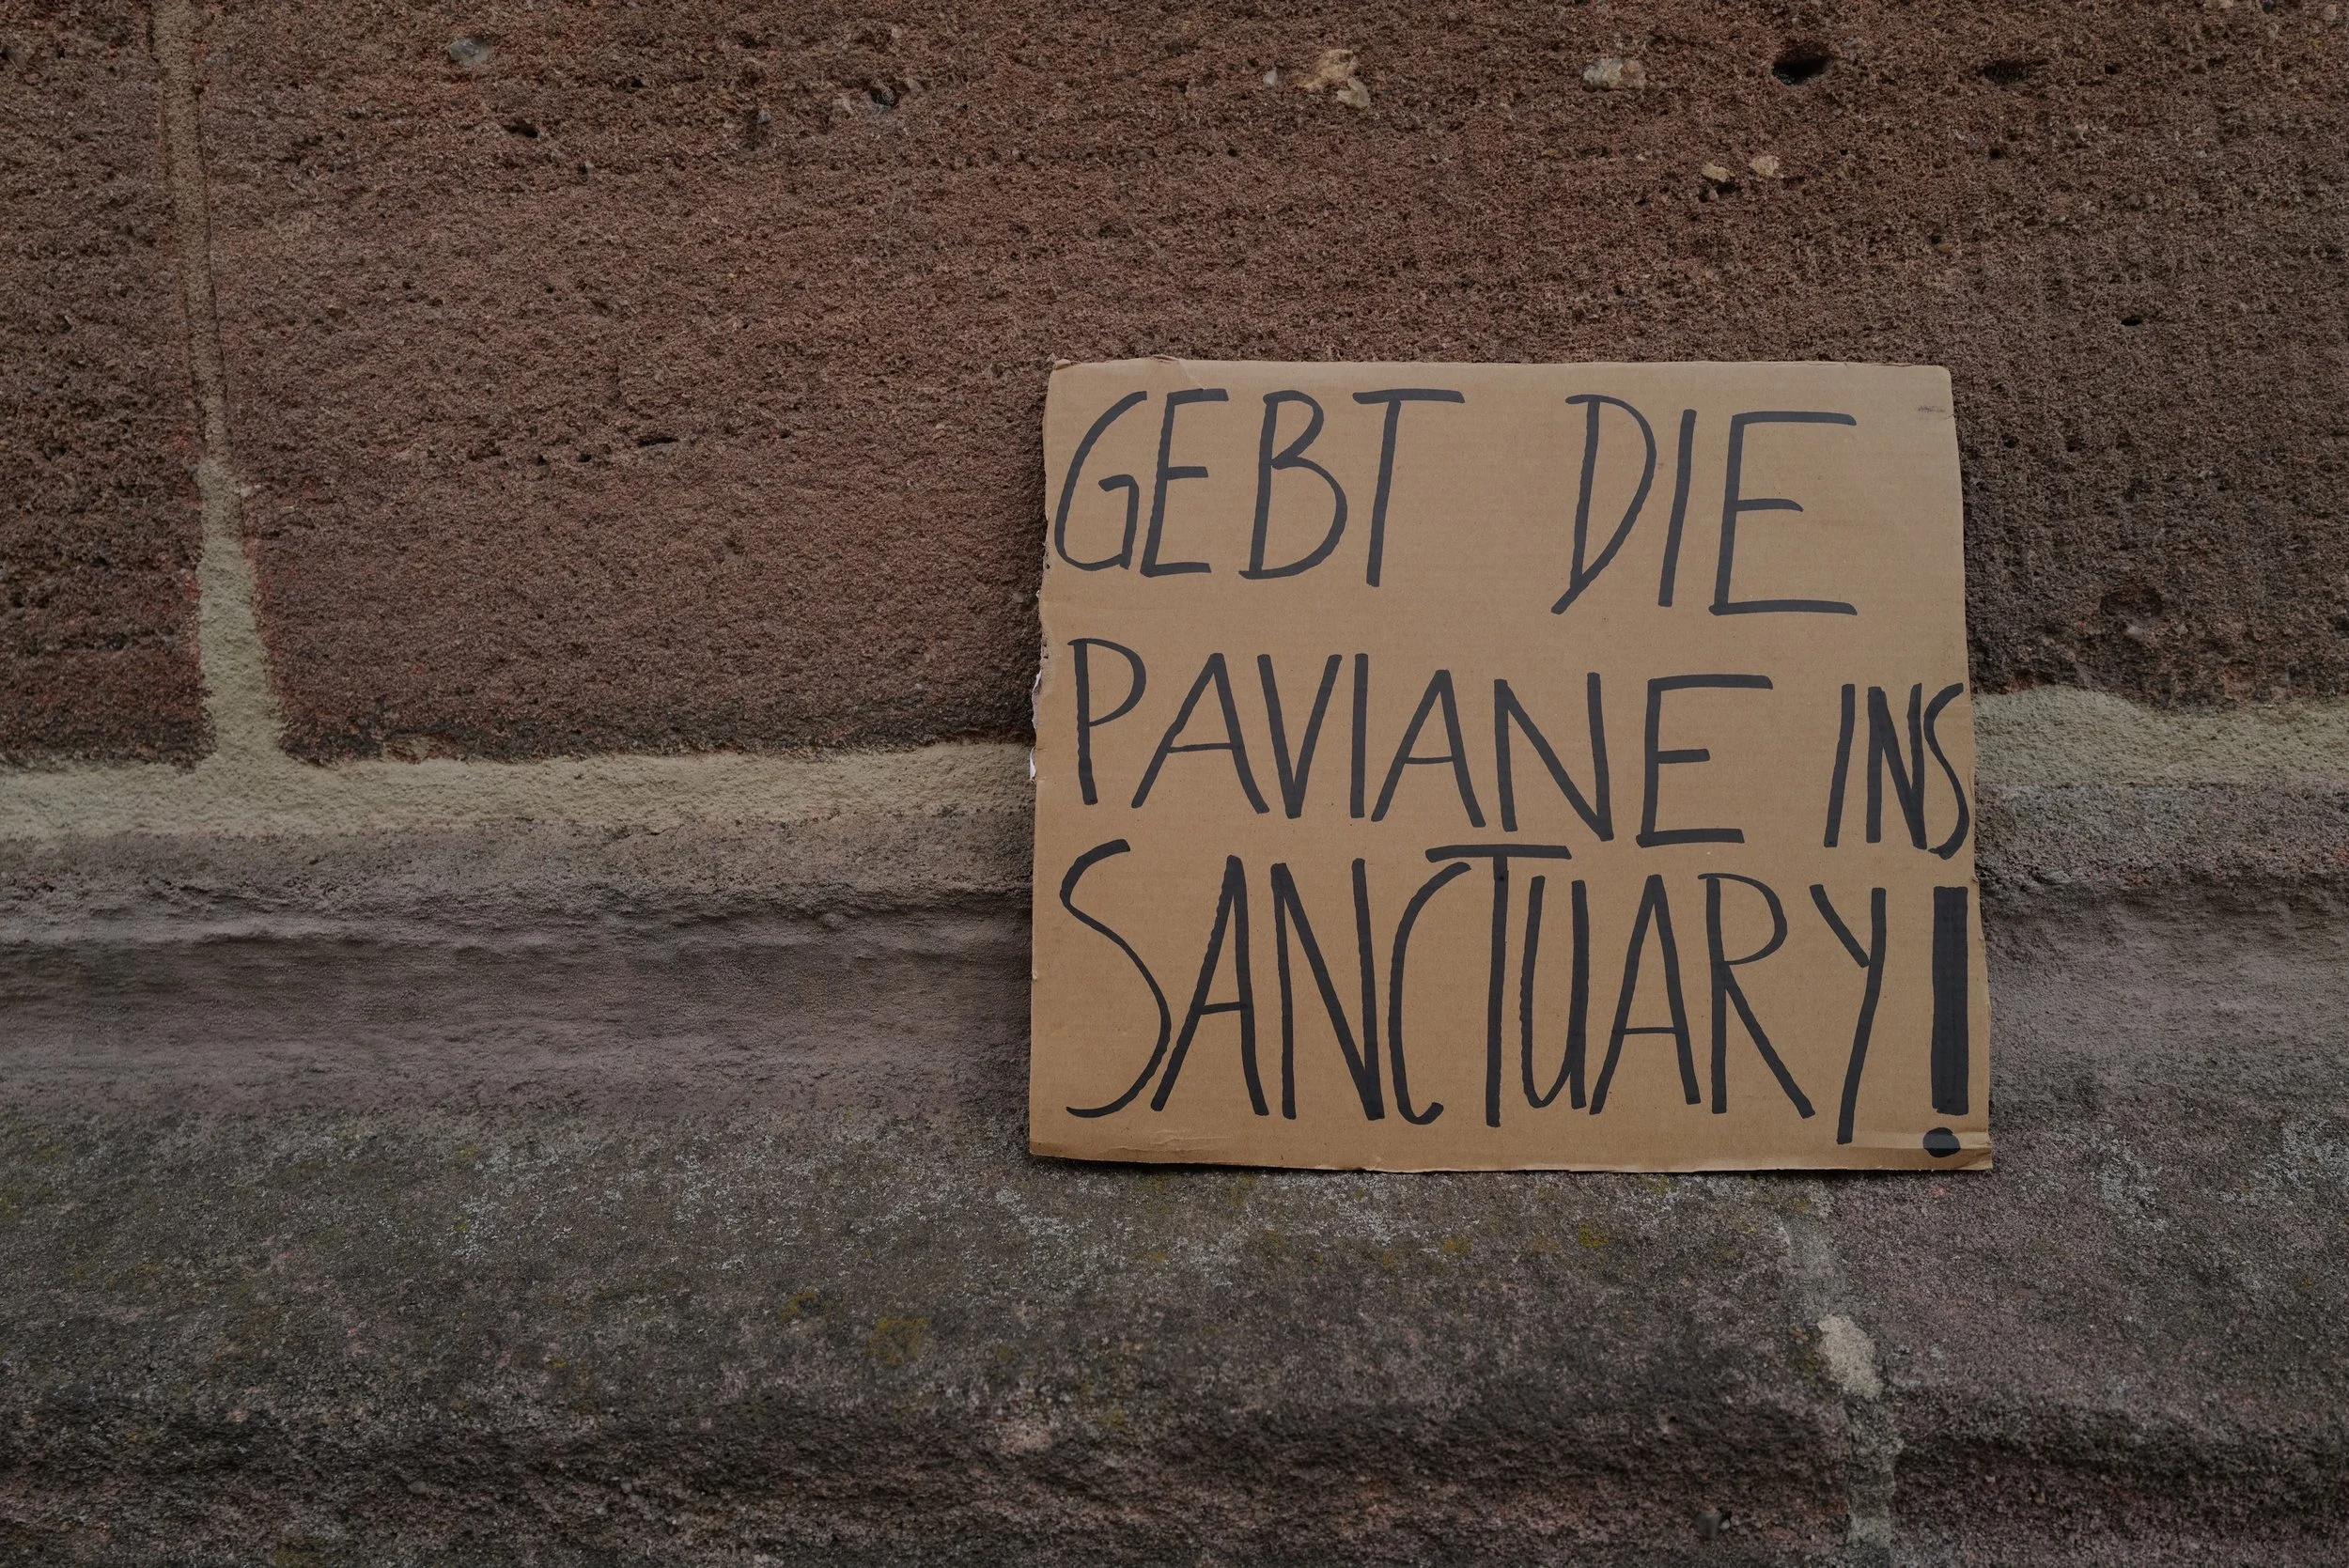 GEBT DIE
PAVIANE INS
SANCTUARY!